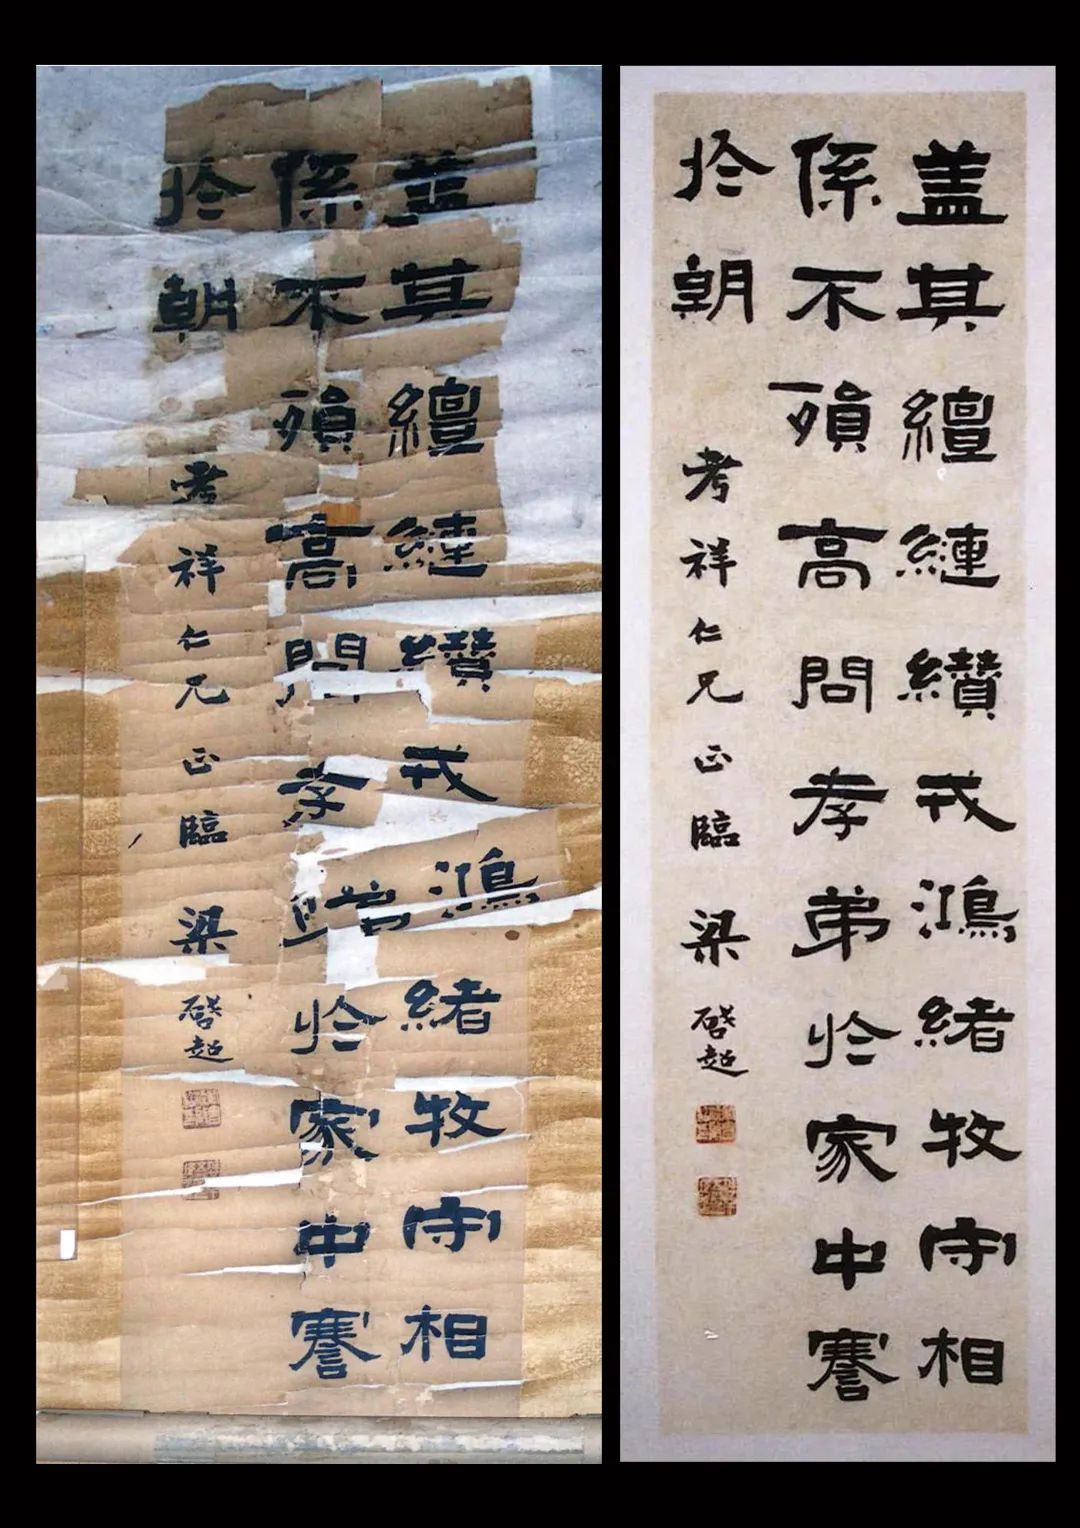 盖其繵縺纘戎鴻緒牧守相
係不殞高問孝弟於家中謇
於朝 考祥仁兄正臨 梁啓超
盖其繵縺纘戎鴻緒牧守相
係不殞高問孝弟於家中謇
於朝 考祥仁兄正臨 梁啓超